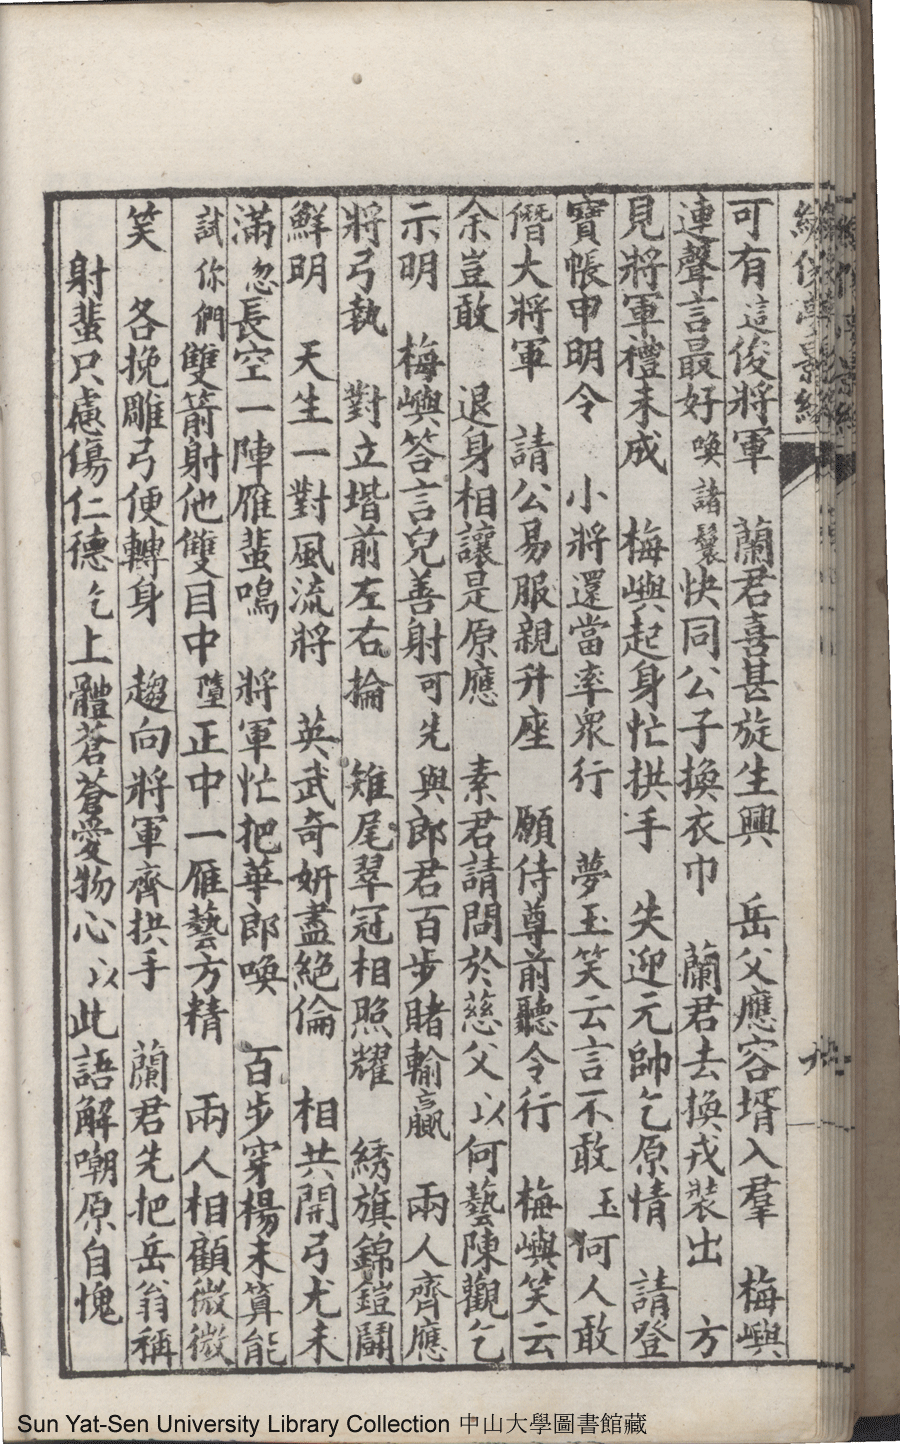 可有這俊將軍　蘭君喜甚旋生興　岳父應容壻入羣　梅嶼
連聲言最好喚諸鬟快同公子換衣巾　蘭君去換戎裝出　方
見將軍禮未成　梅嶼起身忙拱手　失迎元帥乞原情　請登
寶帳申明令　小將還當率衆行　夢玉笑云言不敢　玉何人敢
僭大將軍　請公易服親升座　願侍尊前聽令行　梅嶼笑云
余豈敢　退身相讓是原應　素君請問於慈父以何藝陳觀乞
示明　梅嶼答言兒善射可先與郎君百步賭輸贏　兩人齊應
將弓執　對立堦前左右掄　雉尾翠冠相照耀　綉旗錦鎧鬪
鮮明　天生一對風流將　英武奇妍盡絕倫　相共開弓尤未
滿忽長空一陣雁蜚鳴　將軍忙把華郎喚　百步穿楊未算能
試你們雙箭射他雙目中墮正中一雁藝方精　兩人相顧微微
笑　各挽雕弓便轉身　趨向將軍齊拱手　蘭君先把岳翁稱
射蜚只慮傷仁德乞上體蒼蒼愛物心以此語解嘲原自愧
Sun Yat-Sen University Library Collection 中山大學圖書館藏